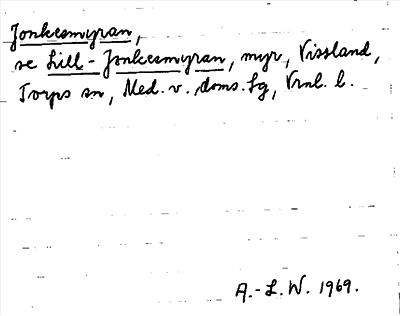 Jonkesmyran,
se Lill-Jonkesmyran, myr, Vissland,
Torps sn, Med. v. doms. sg, Vrnl. l.
A.-L.W. 1969.